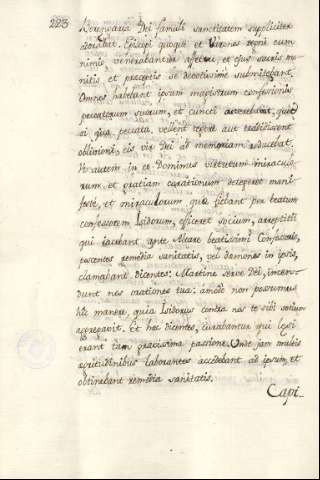 223
Verendaria Dei famuli sanctitatem suppliciter
adorabat. Episcopi quoque et Virones regni cum
nimio venerabantur affectu, et ejus sacris mo-
nitis, et preceptis se devotissime submittebant.
Omnes habebant ipsum magistrum confessionis
peccatorum suorum, et cuncti asserebant, quod
si qua peccata, vellent tegere aut tradidissent
oblivioni, eis vir Dei ad memoriam adducebat.
Ut autem in eo Dominus virtutum miracu-
rum, et gratiam curationum detegeret mani-
feste, et miraculorum, quæ fiebant per beatum
confessorem Isidorum, efficeret socium, arreptitii
qui jacebant, ante Altare beatissimi Confessoris,
petentes remedia sanitatis, vel Dæmones in ipsis,
clamabant dicentes: Martine serve Dei, incen-
dunt nos orationes tuæ: amodo non possumus
hic manere, quia Isidorus contra nos te sibi socium
aggregavit. Et hæc dicentes, curabantur qui læsi
erant tam gravissima passione. Unde jam multi
ægritudinibus laborantes accedebant ad ipsum, et
obtinebant remedia sanitatis.
Capi